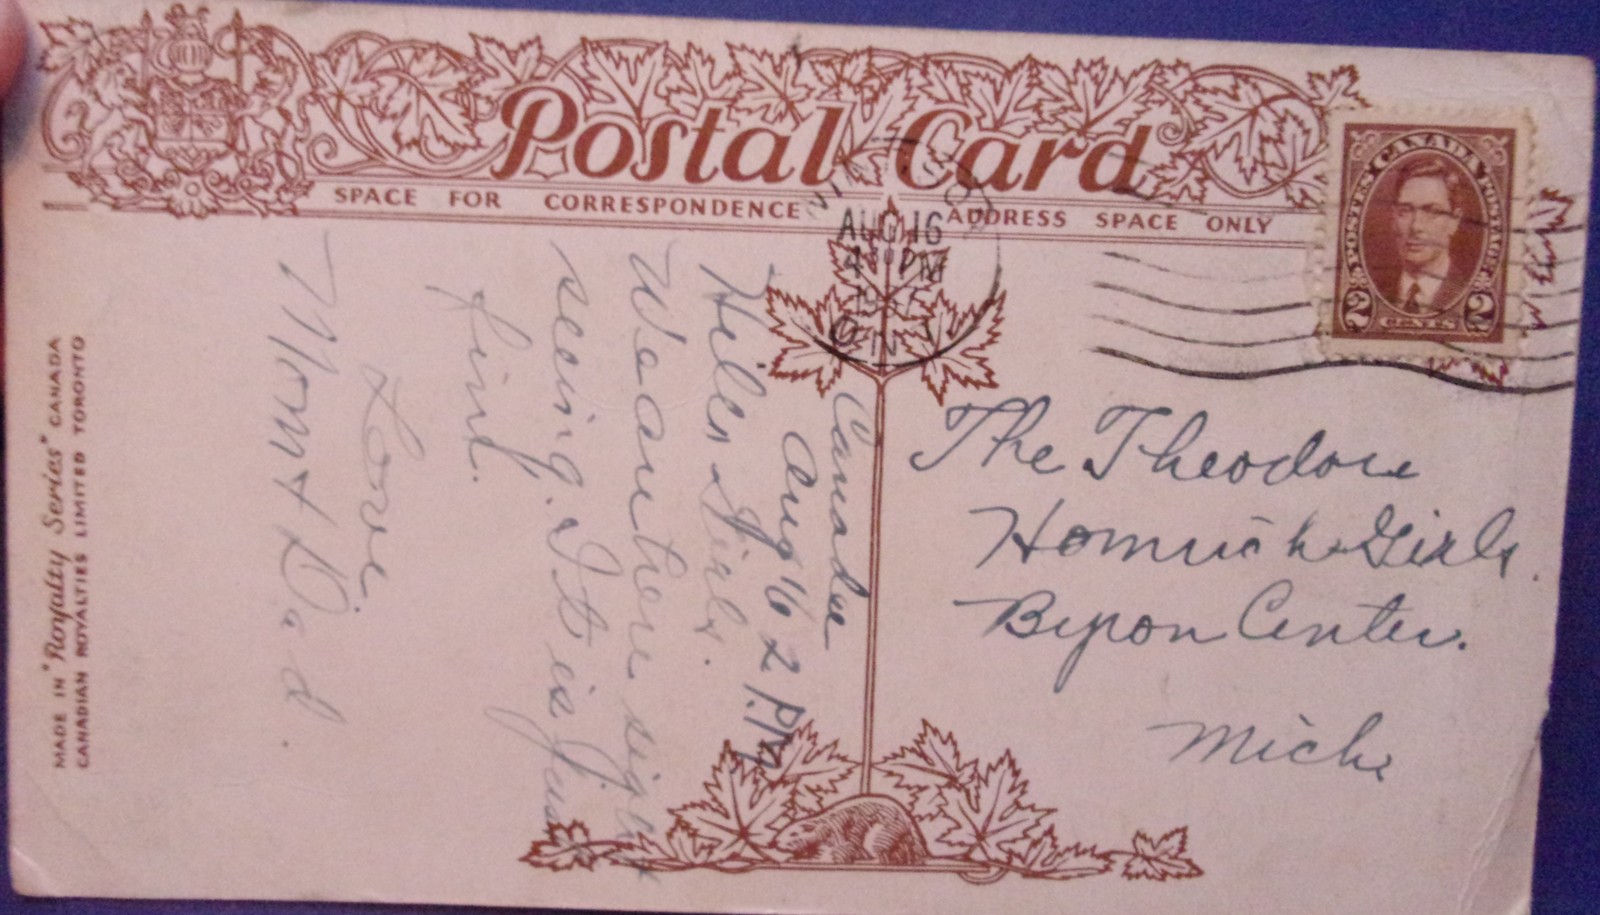 Postal Card
SPACE FOR CORRESPONDENCE
ADDRESS SPACE ONLY
AUG 16
4 30 PM
ONT
CANADA
POSTES POSTAGE
2 CENTS 2
Canada
Aug 16 2 P.M
Hilen Girls.
We are here sight
seeing. It is just
fine.
Love
Mom & Dad.
The Theodore
Homrich Girls.
Byron Center.
Mich.
MADE IN "Royalty Series" CANADA
CANADIAN ROYALTIES LIMITED TORONTO